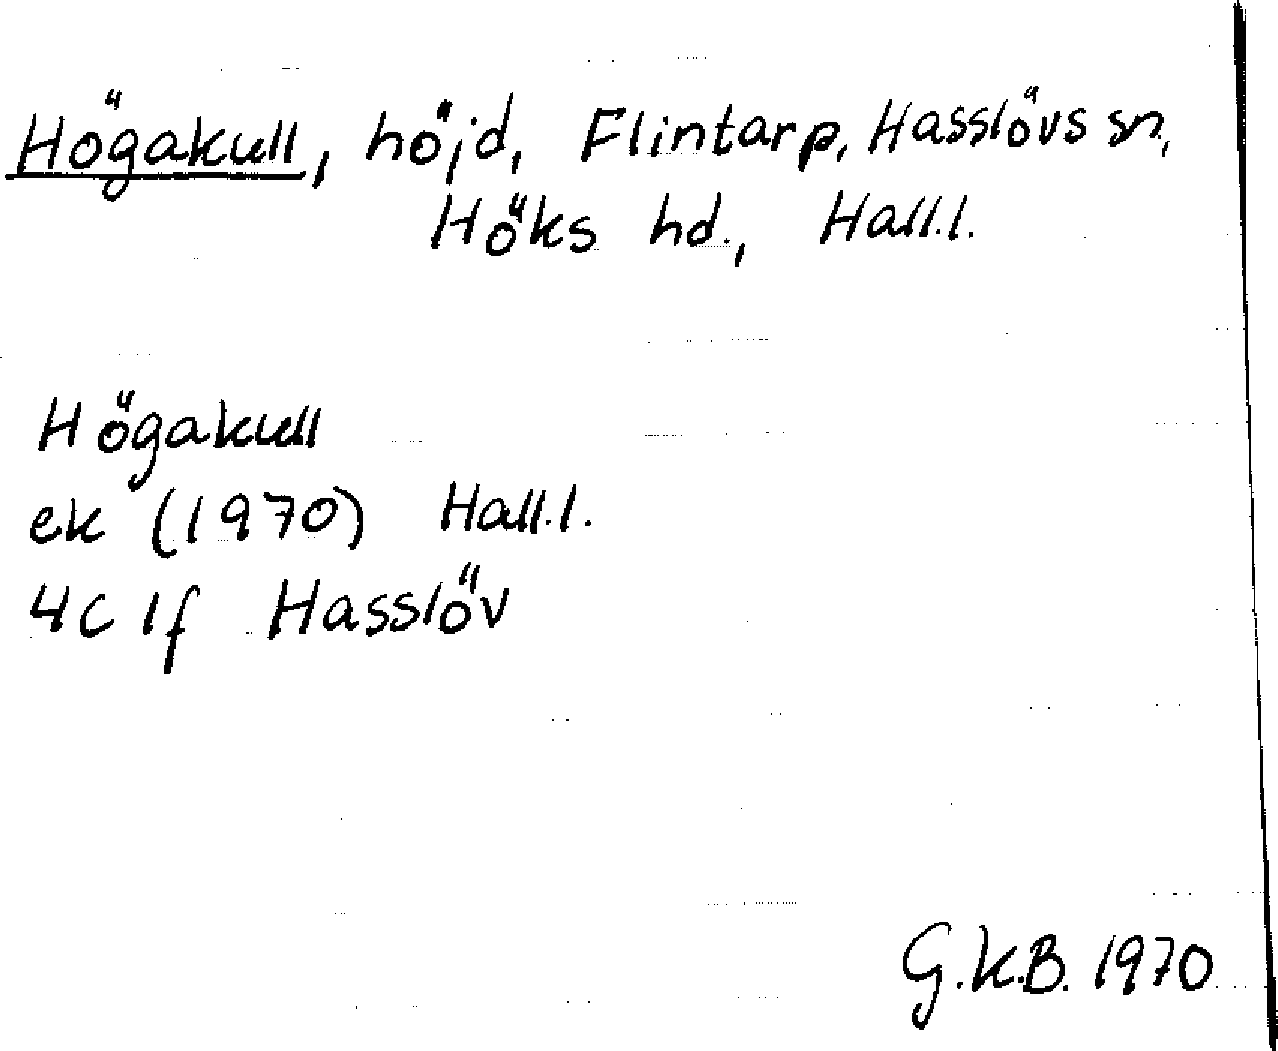 Högakull, höjd, Flintarp, Hasslövs sn,
Höks hd., Hall.l.
Högakull
ek (1970) Hall.l.
4C 1f Hasslöv
G.K.B. 1970